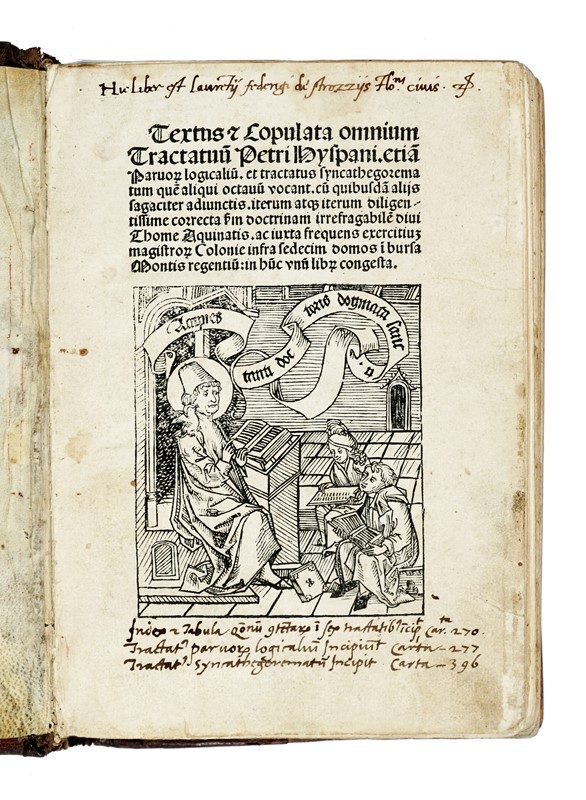 Hic Liber est Laurētij federigi de strozzijs Flo.ni civis.
Textus ⁊ Copulata omnium
Tractatuū Petri Hyspani. etiā
Paruoꝝ logicaliū. et tractatus syncathegorema
tum quē aliqui octauū vocant. cū quibusdā alijs
sagaciter adiunctis. iterum atqꝫ iterum diligen-
tissime correcta ẜm doctrinam irrefragabilē diui
Thome Aquinatis. ac iuxta frequens exercitiuꝫ
magistroꝝ Colonie infra sedecim domos ī bursa
Montis regentiū: in hūc vnū libꝝ congesta.
Accipies
tanti doc
toris dogmata sanc
ta.
Index ⁊ Tabula ī sex tractatibꝰ Car.ta 270.
Tractatꝰ paruoꝝ logicaliū Incipiūt Carta - 277
Tractatꝰ Syncathegorematū Incipit Carta - 396